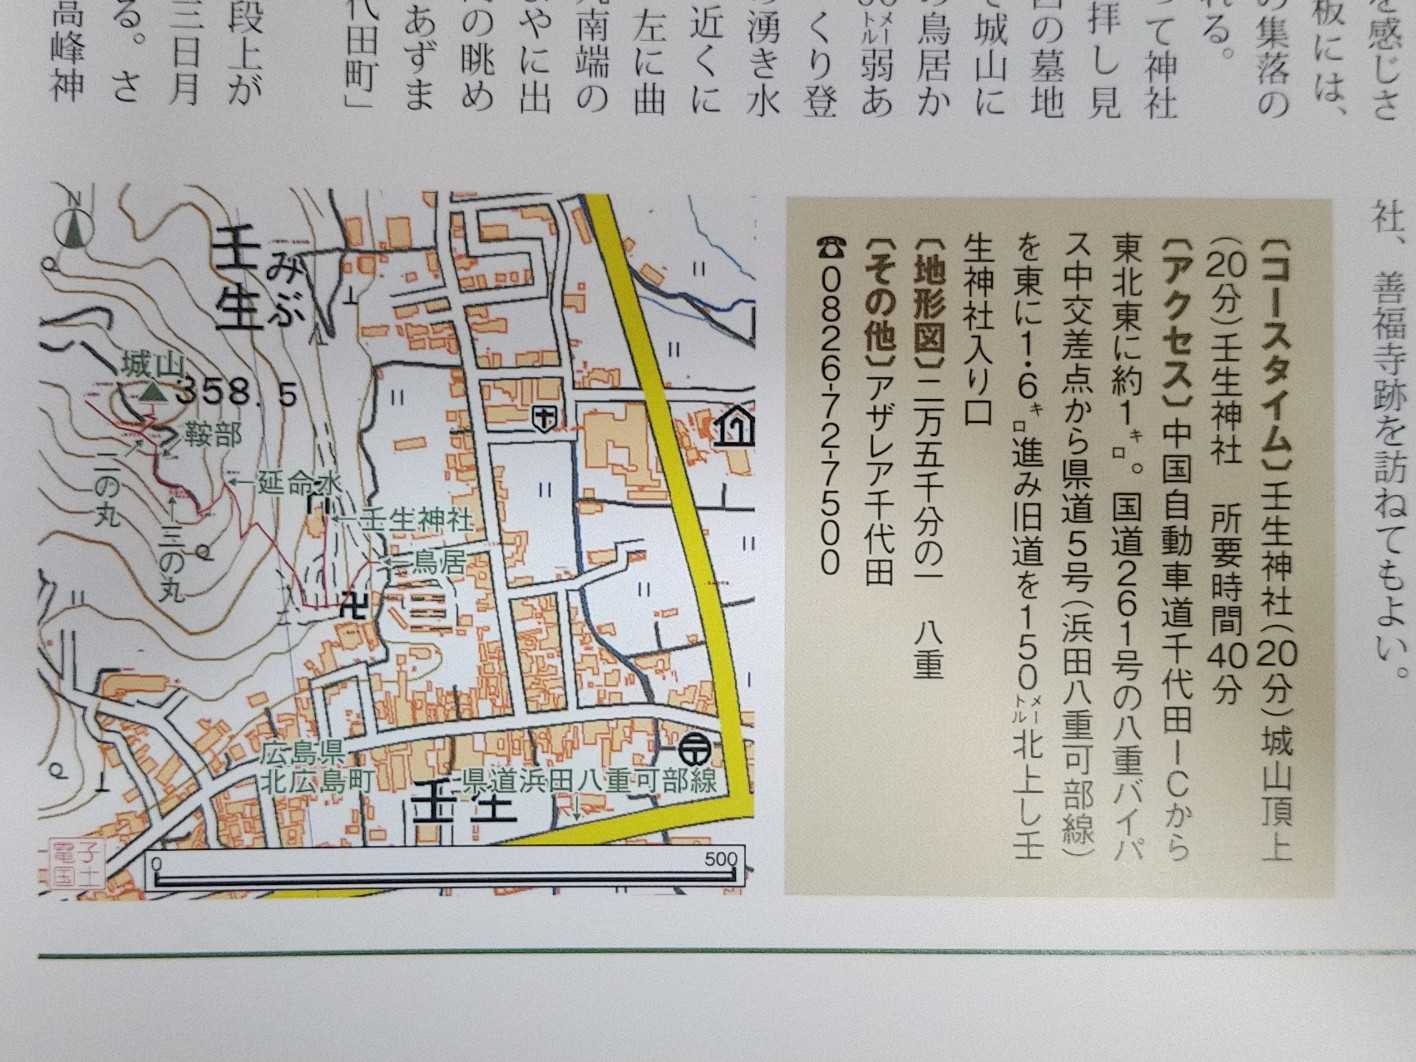 を感じさ
板には、
の集落の
れる。
って神社
拝し見
西の墓地
て城山に
の鳥居か
弱あ
くり登
湧き水
近くに
左に曲
丸南端の
やに出
の眺め
あずま
代田町」
段上が
三日月
る。さ
高峰神
社、善福寺跡を訪ねてもよい。
〔コースタイム〕壬生神社(20分)城山頂上
(20分)壬生神社　所要時間40分
〔アクセス〕中国自動車道千代田ICから
東北東に約1キロ。国道261号の八重バイパ
ス中交差点から県道5号(浜田八重可部線)
を東に1・6キロ進み旧道を150メートル北上し壬
生神社入り口
〔地形図〕二万五千分の一　八重
〔その他〕アザレア千代田
☎0826-72-7500
N
壬生
みぶ
城山
358.5
鞍部
二の丸
延命水
三の丸
壬生神社
鳥居
広島県
北広島町
壬生
県道浜田八重可部線
電子
国土
0
500